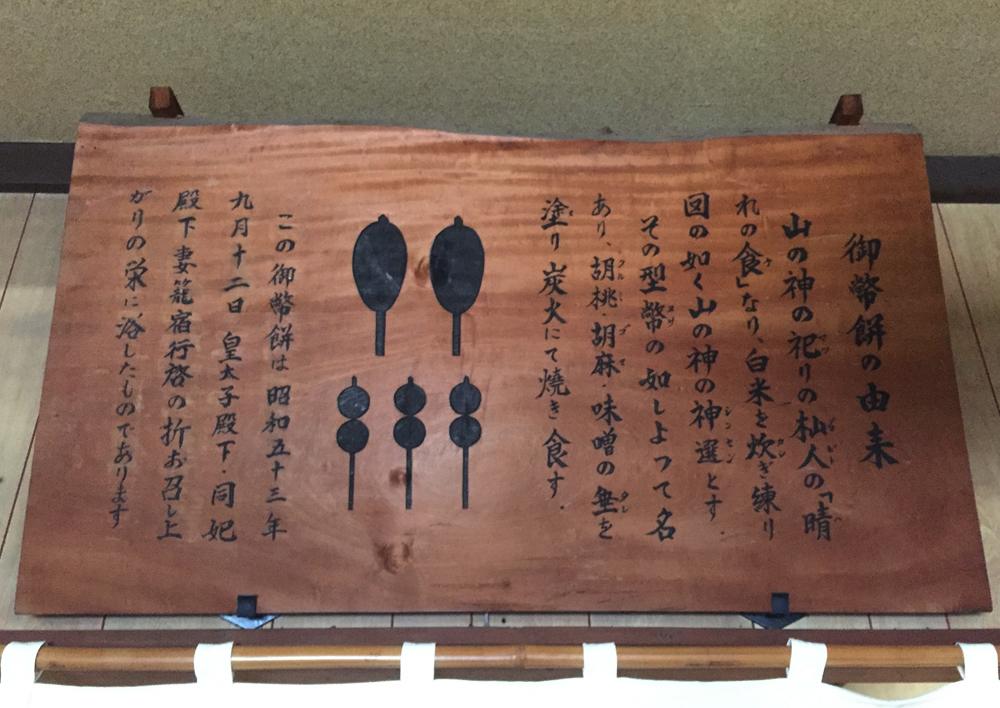 御幣餅の由来
山の神の祀りの杣人の「晴
れの食」なり、白米を炊ぎ練り
図の如く山の神の神選とす.
その型幣の如しよって名
あり、胡桃・胡麻・味噌の垂を
塗り炭火にて焼き食す.
この御幣餅は昭和五十三年
九月十二日 皇太子殿下・同妃
殿下妻籠宿行啓の折お召し上
がりの栄に浴したものであります